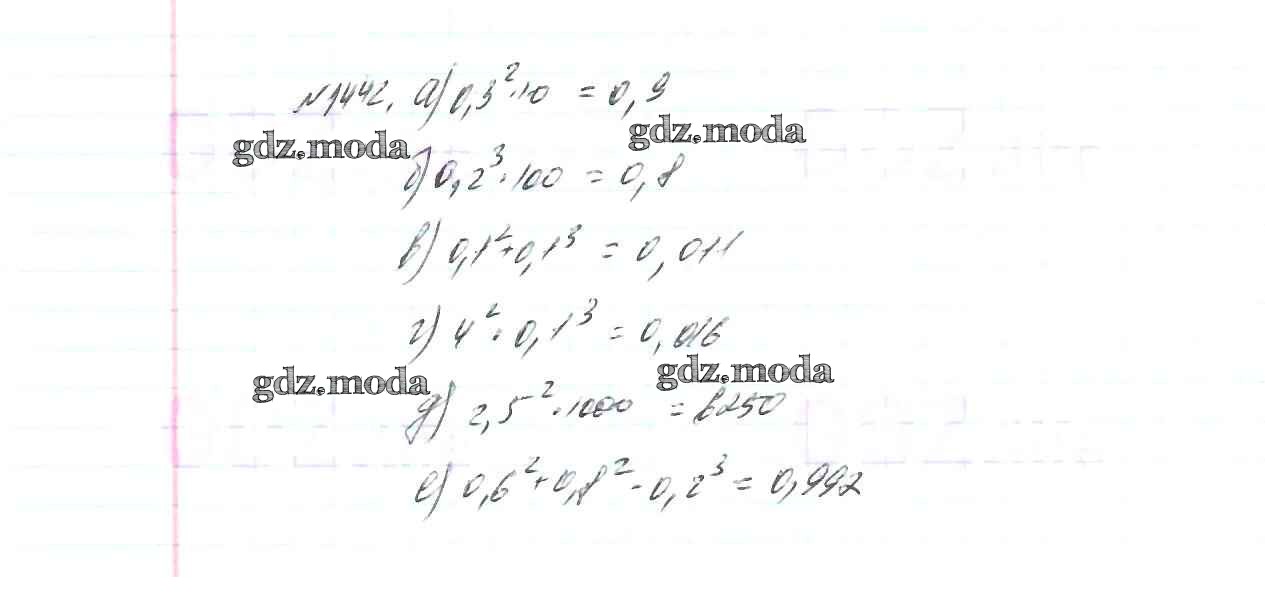 №1442. а) 0,3²·10 = 0,9
gdz.moda gdz.moda
б) 0,2³·100 = 0,8
в) 0,1²+0,1³ = 0,011
г) 4²·0,1³ = 0,016
gdz.moda gdz.moda
д) 2,5²·1000 = 6250
е) 0,6²+0,8²-0,2³ = 0,992